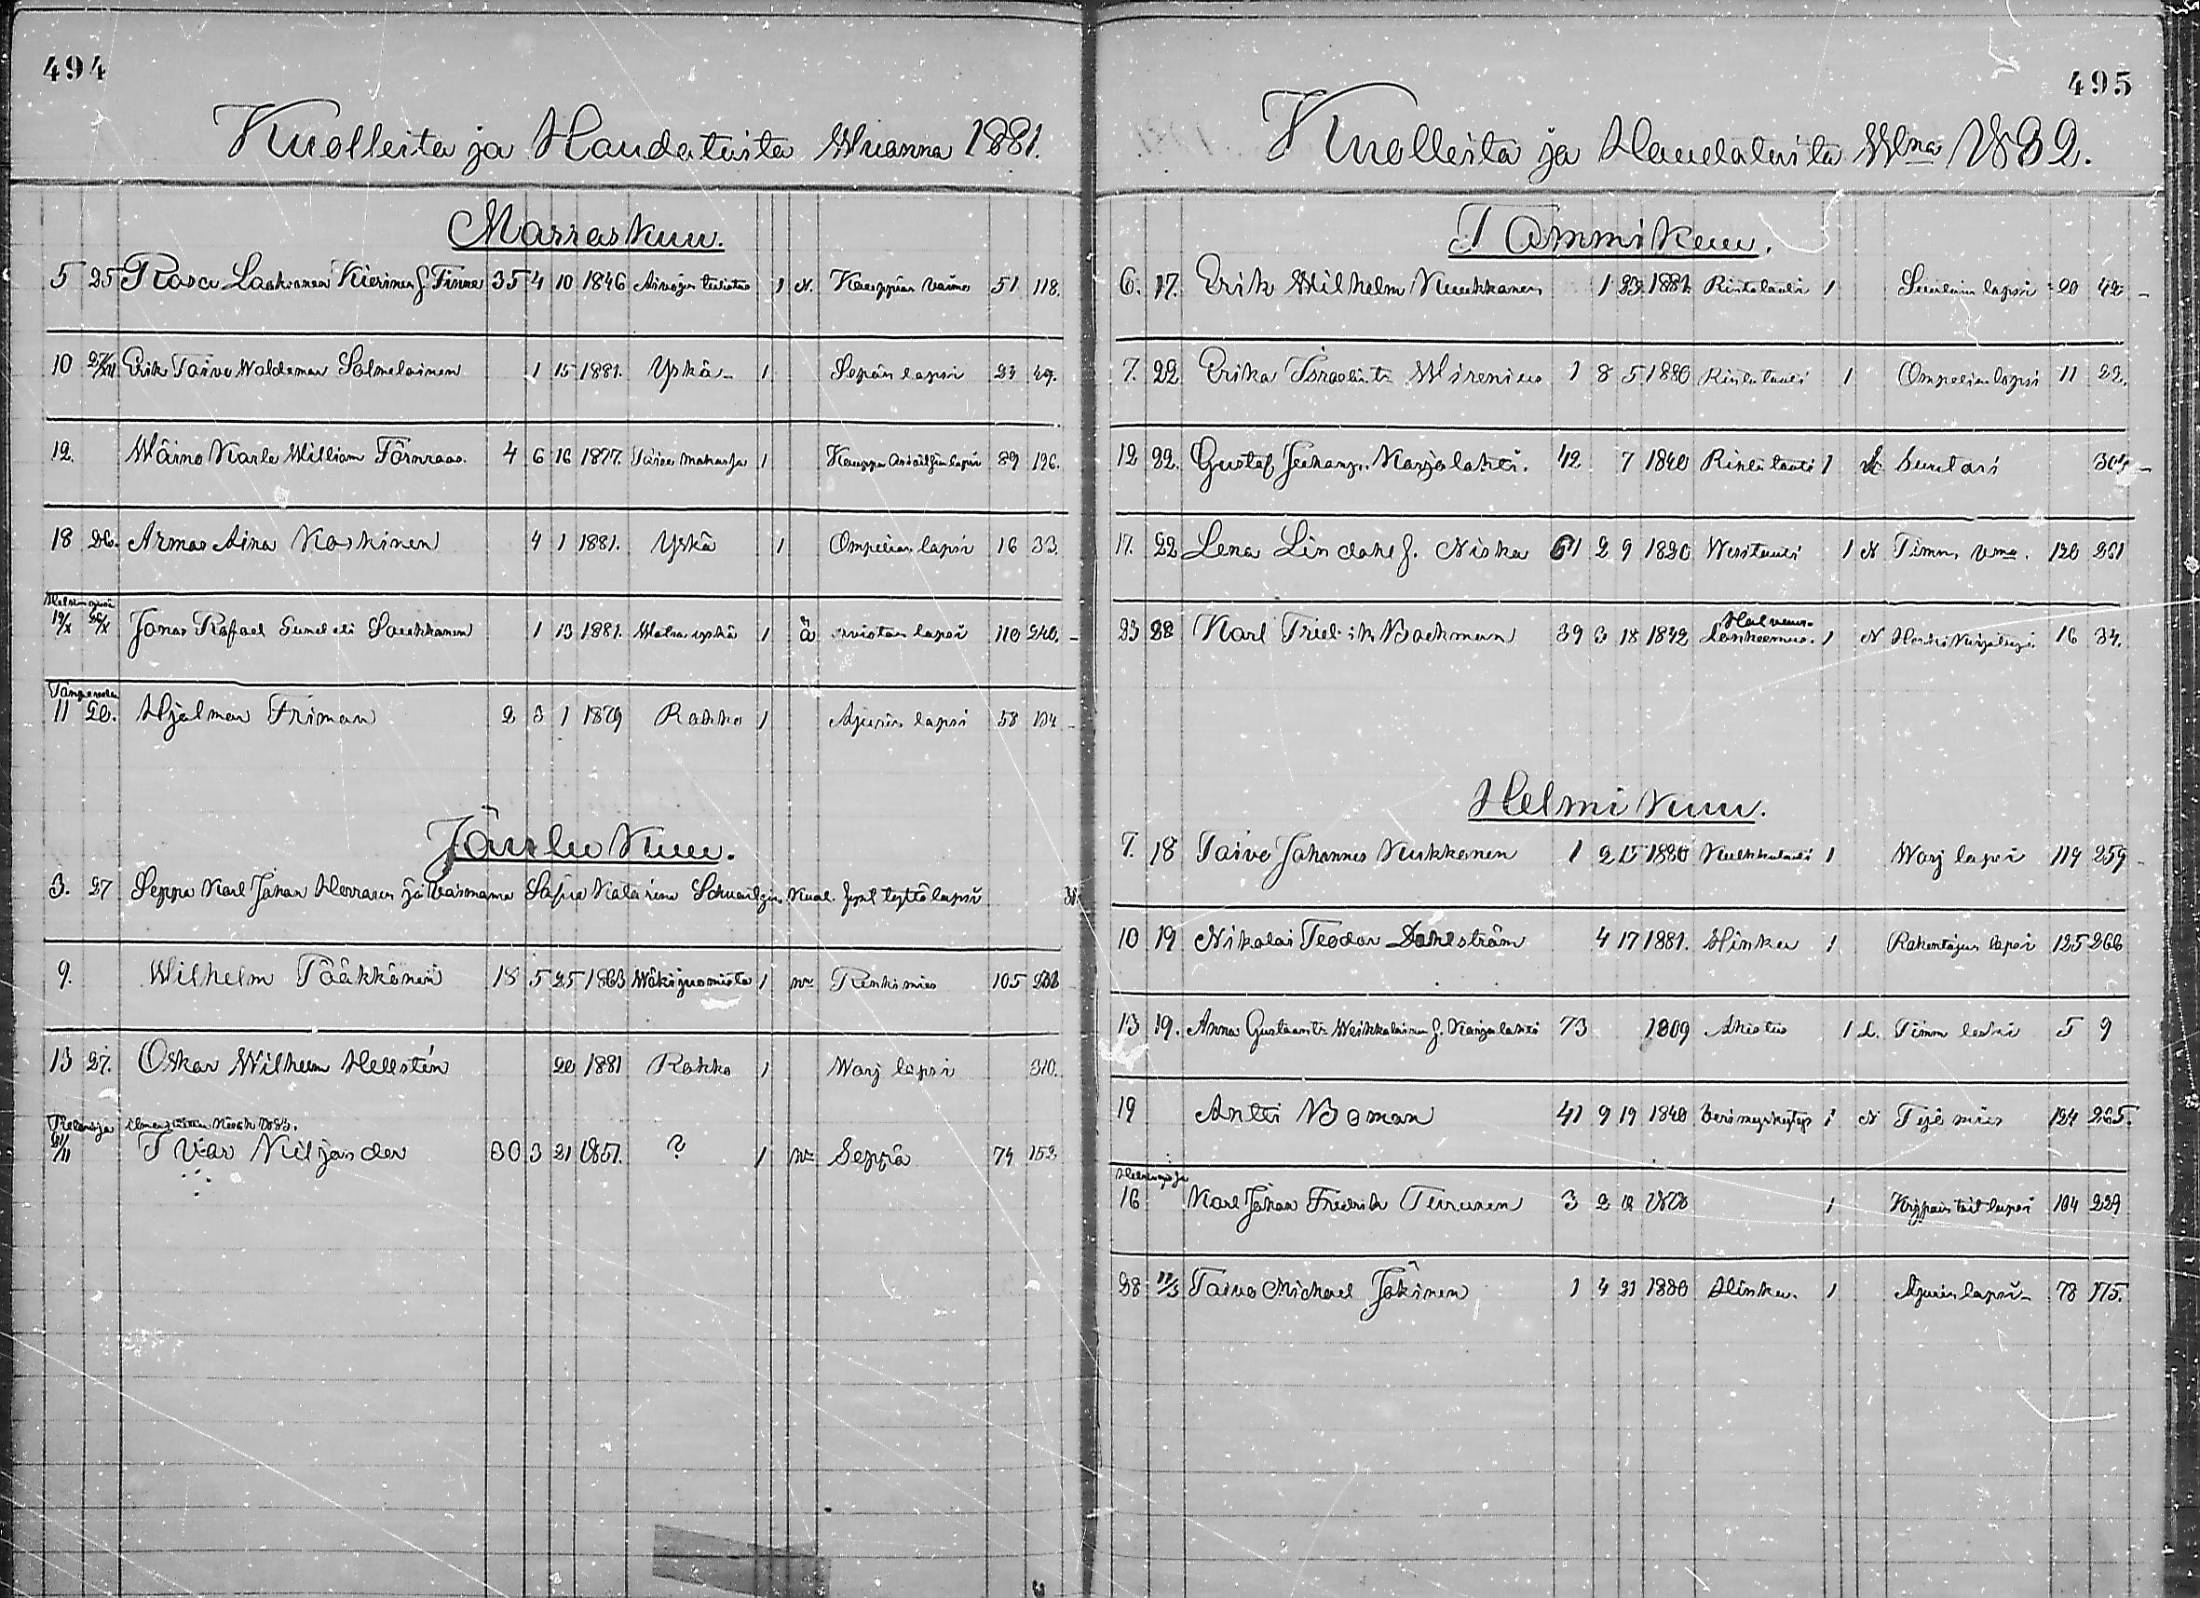 494
Kuolleita ja Haudatuita Wuanna 1881.
Marraskuu.
5 25 Rosa Laakkonen Kierinen f. Finne 35 4 10 1846 1 N. Kauppian vaimo 51 118.
10 27/XII Erik Toivo Waldemar Salmelainen 1 15 1881. Yskä 1 Sepän lapsi 23 49.
12. Wäinö Karle William Törnroos 4 6 16 1877. 1 89 196.
18 Do. Armas Aina Koskinen 4 1 1881. Yskä 1 Ompelian lapsi 16 33.
Helsingissä
19/X 26/X Jonas Rafael Sundeli Saukkonen 1 13 1881. yskä 1 ä lapsi 110 240.
11 20. Hjalmar Friman 2 3 1 1879 Rokko 1 Ajurin lapsi 58 134
Joulu Kuu.
3. 27 Seppä Karl Johan Herrasen ja vaimonsa Sofia Katarina Kuol. synt tyttölapsi 38
9. Wilhelm Pääkkönen 18 5 25 1863 Wäkijuomista 1 nr Renkimies 105 232
13 27. Oskar Wilhelm Hellstén 20 1881 Rokko 1 Warj lapsi 310.
Ivar Kiljander 30 3 21 1851. ? 1 nr Seppä 74 153
495
Kuolleita ja Haudatuita Wna 1882.
Tammikuu.
6. 17. Erik Wilhelm Kuukkanen 1 23 1881. Rintatauti 1 Suutarin lapsi 20 42
7. 22 Erika Israelintr Wirenius 1 8 5 1880 Rintatauti 1 Ompelian lapsi 11 22.
12 22. Gustaf Juhanp. Karjalahti. 42 7 1840 Rintatauti 1 Suutari 304
17. 22 Lena Lindahl f. Niska 61 2 9 1820 Wesitauti 1 N Timm. vmo. 120 251
23 28 Karl Fredrik Backman 39 3 18 1842 Halvaus. 1 N 16 34.
Helmi Kuu.
7. 18 Toivo Johannes Kukkonen 1 2 15 1880 Kulkkutauti 1 Warj lapsi 119 259
10 19 Nikolai Teodor Dahlström 4 17 1881. Hinku 1 Rakentajan lapsi 125 266
13 19. Anna Gustaantr Weikkolainen f. Karjalahti 73 1809 Ahistus 1 L. Timm leski 5 9
19 Antti Boman 41 9 19 1840 1 N Työ mies 124 265.
16 Karl Johan Fredrik Turunen 3 2 1 lapsi 104 229
28 11/3 Toivo Michael Jokinen 1 4 21 1880 Hinku. 1 Ajurin lapsi 78 175.